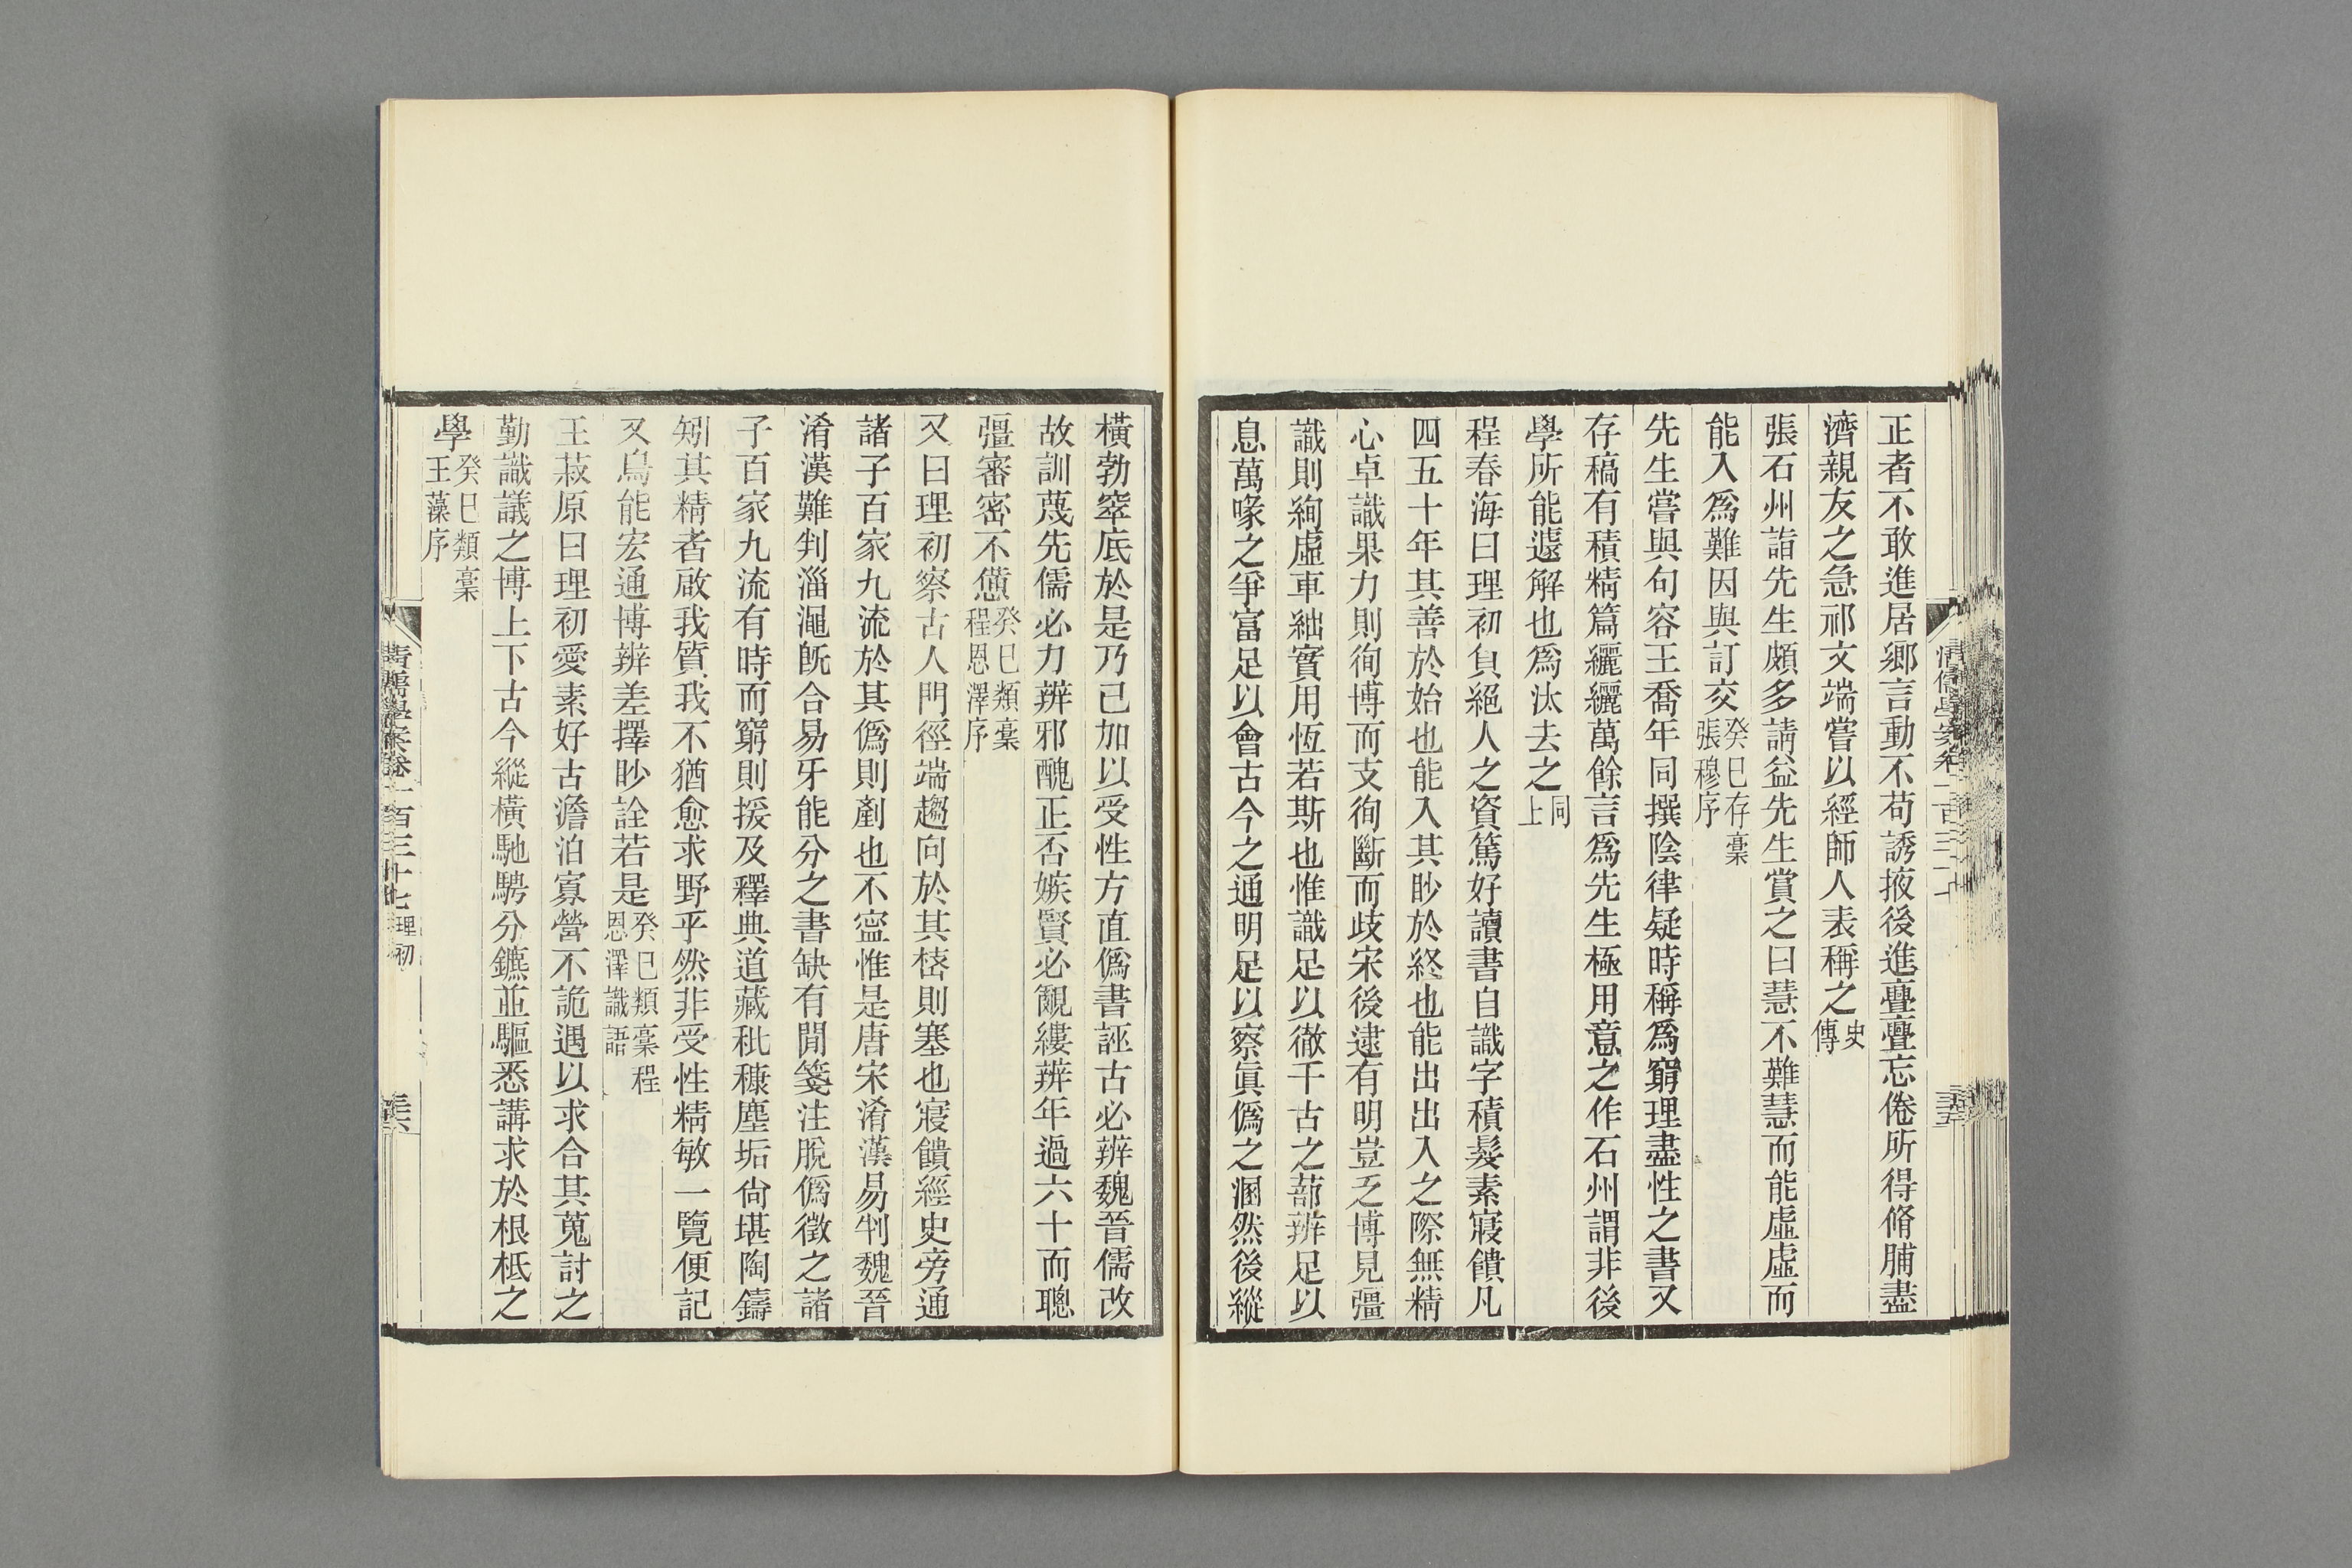 正者不敢進居鄉言動不苟誘掖後進亹亹忘倦所得脩脯盡
濟親友之急祁文端嘗以經師人表稱之史傳
張石州詣先生頗多請益先生賞之曰慧不難慧而能虛虛而
能入爲難因與訂交癸巳存稾張穆序
先生嘗與句容王喬年同撰陰律疑時稱爲窮理盡性之書又
存稿有積精篇纚纚萬餘言爲先生極用意之作石州謂非後
學所能遽解也爲汰去之同上
程春海曰理初負絕人之資篤好讀書自識字積髮素寢饋凡
四五十年其善於始也能入其眇於終也能出出入之際無精
心卓識果力則徇博而支徇斷而歧宋後逮有明豈乏博見彊
識則絢虛車絀實用恆若斯也惟識足以徹千古之蔀辨足以
息萬喙之爭富足以會古今之通明足以察眞僞之溷然後縱
橫勃窣底於是乃已加以受性方直僞書誣古必辨魏晉儒改
故訓蔑先儒必力辨邪醜正否嫉賢必覼縷辨年過六十而聰
彊審密不憊癸巳類稾程恩澤序
又曰理初察古人門徑端趨向於其梏則塞也寢饋經史旁通
諸子百家九流於其僞則剷也不寍惟是唐宋淆漢易判魏晉
淆漢難判淄澠旣合易牙能分之書缺有閒箋注脫僞徵之諸
子百家九流有時而窮則援及釋典道藏秕穅塵垢尙堪陶鑄
矧其精者啟我質我不猶愈求野乎然非受性精敏一覽便記
又烏能宏通博辨差擇眇詮若是癸巳類稾程恩澤識語
王菽原曰理初愛素好古澹泊寡營不詭遇以求合其蒐討之
勤識議之博上下古今縱橫馳騁分鑣並驅悉講求於根柢之
學癸巳類稾王藻序
清儒學案卷一百三十七 理初